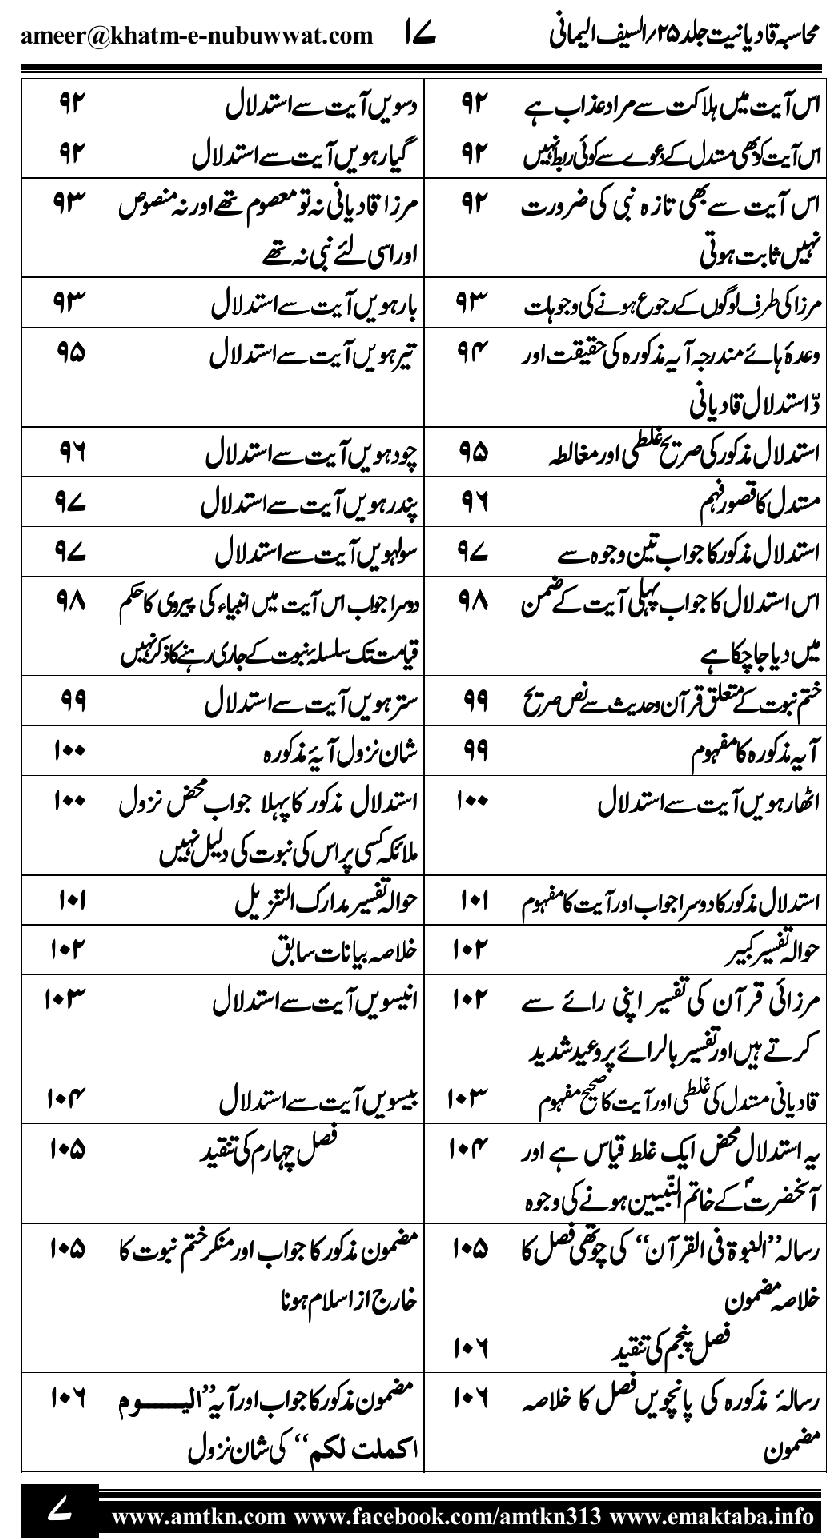 محاسبہ قادیانیت جلد ۲۵/السیف الیمانی ۱۷ ameer@khatm-e-nubuwwat.com
اس آیت میں ہلاکت سے مراد عذاب ہے ۹۲
دسویں آیت سے استدلال ۹۲
اس آیت کو بھی مستدل کے دعوے سے کوئی ربط نہیں ۹۲
گیارہویں آیت سے استدلال ۹۲
اس آیت سے بھی تازہ نبی کی ضرورت ۹۲
نہیں ثابت ہوتی
مرزا قادیانی نہ تو معصوم تھے اور نہ منصوص ۹۳
اور اسی لئے نبی نہ تھے
مرزا کی طرف لوگوں کے رجوع ہونے کی وجوہات ۹۳
بارہویں آیت سے استدلال ۹۳
وعدۂ ہائے مندرجہ آیہ مذکورہ کی حقیقت اور ۹۴
ردّ استدلال قادیانی
تیرہویں آیت سے استدلال ۹۵
استدلال مذکور کی صریح غلطی اور مغالطہ ۹۵
چودہویں آیت سے استدلال ۹۶
مستدل کا قصور فہم ۹۶
پندرہویں آیت سے استدلال ۹۷
استدلال مذکور کا جواب تین وجوہ سے ۹۷
سولہویں آیت سے استدلال ۹۷
اس استدلال کا جواب پہلی آیت کے ضمن ۹۸
میں دیا جا چکا ہے
دوسرا جواب اس آیت میں انبیاء کی پیروی کا حکم ۹۸
قیامت تک سلسلہ نبوت کے جاری رہنے کا ذکر نہیں
ختم نبوت کے متعلق قرآن و حدیث سے نص صریح ۹۹
سترہویں آیت سے استدلال ۹۹
آیہ مذکورہ کا مفہوم ۹۹
شان نزول آیۂ مذکورہ ۱۰۰
اٹھارہویں آیت سے استدلال ۱۰۰
استدلال مذکور کا پہلا جواب محض نزول ۱۰۰
ملائکہ کسی پر اس کی نبوت کی دلیل نہیں
استدلال مذکور کا دوسرا جواب اور آیت کا مفہوم ۱۰۱
حوالہ تفسیر مدارک التنزیل ۱۰۱
حوالہ تفسیر کبیر ۱۰۲
خلاصہ بیانات سابق ۱۰۲
مرزائی قرآن کی تفسیر اپنی رائے سے ۱۰۲
کرتے ہیں اور تفسیر بالرائے پر وعید شدید
انیسویں آیت سے استدلال ۱۰۳
قادیانی مستدل کی غلطی اور آیت کا صحیح مفہوم ۱۰۳
بیسویں آیت سے استدلال ۱۰۴
یہ استدلال محض ایک غلط قیاس ہے اور ۱۰۴
آنحضرتؐ کے خاتم النّبیین ہونے کی وجوہ
فصل چہارم کی تنقید ۱۰۵
رسالہ ”النبوۃ فی القرآن“ کی چوتھی فصل کا ۱۰۵
خلاصہ مضمون
مضمون مذکور کا جواب اور منکر ختم نبوت کا ۱۰۵
خارج از اسلام ہونا
فصل پنجم کی تنقید ۱۰۶
رسالۂ مذکورہ کی پانچویں فصل کا خلاصہ ۱۰۶
مضمون
مضمون مذکور کا جواب اور آیہ ”الیــــوم ۱۰۶
اکملت لکم“ کی شان نزول
۷ www.amtkn.com www.facebook.com/amtkn313 www.emaktaba.info